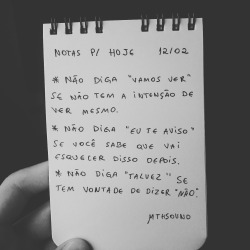 NOTAS P/ HOJE 12/02
* NÃO DIGA "VAMOS VER"
SE NÃO TEM A INTENÇÃO DE
VER MESMO.
* NÃO DIGA "EU TE AVISO"
SE VOCÊ SABE QUE VAI
ESQUECER DISSO DEPOIS.
* NÃO DIGA "TALVEZ" SE
TEM VONTADE DE DIZER "NÃO".
MTHSOUND